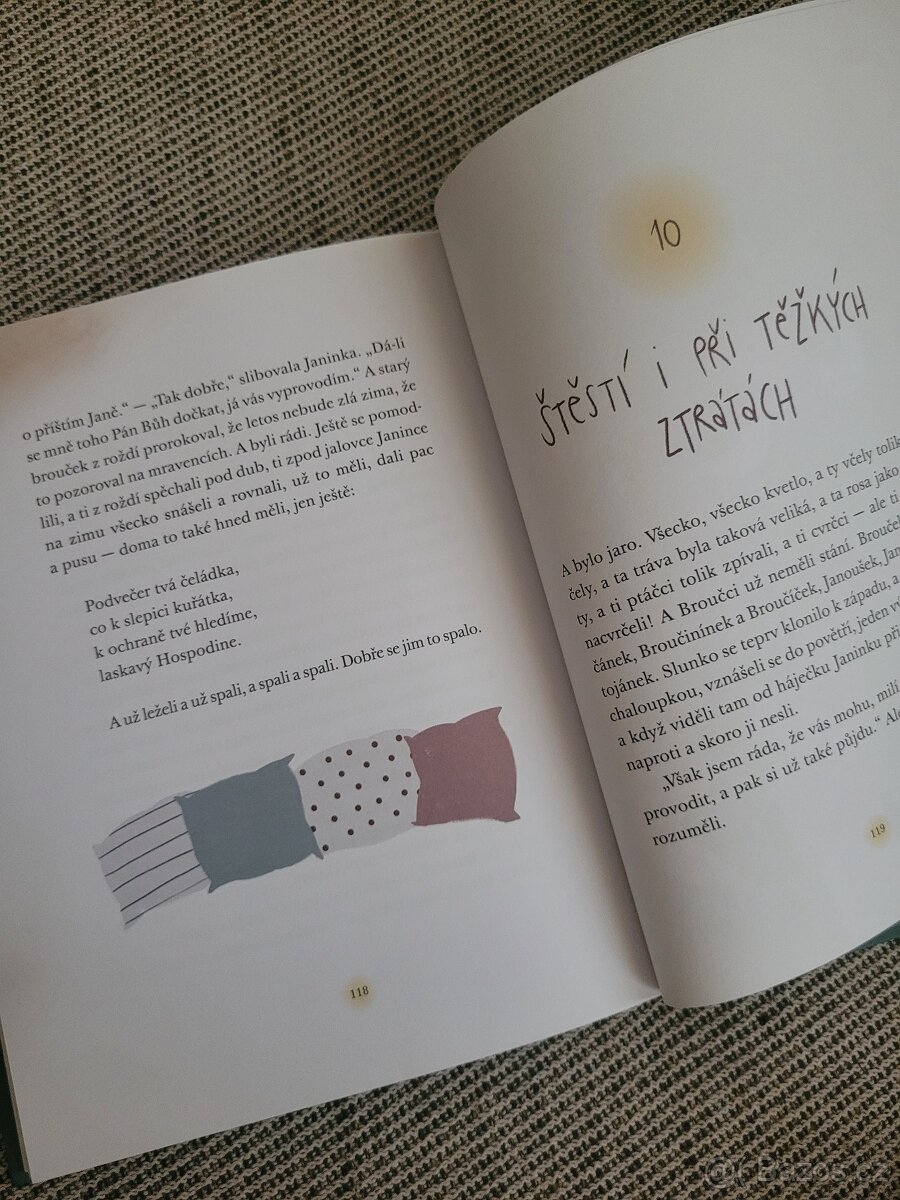 o příštím Janě.“ — „Tak dobře,“ slibovala Janinka. „Dá-li
se mně toho Pán Bůh dočkat, já vás vyprovodím.“ A starý
brouček z roždí prorokoval, že letos nebude zlá zima, že
to pozoroval na mravencích. A byli rádi. Ještě se pomod-
lili, a ti z roždí spěchali pod dub, ti zpod jalovce Janince
na zimu všecko snášeli a rovnali, už to měli, dali pac
a pusu — doma to také hned měli, jen ještě:
Podvečer tvá čeládka,
co k slepici kuřátka,
k ochraně tvé hledíme,
laskavý Hospodine.
A už leželi a už spali, a spali a spali. Dobře se jim to spalo.
118
10
ŠTĚSTÍ i PŘi TĚŽKÝCH
ZTRÁTÁCH
A bylo jaro. Všecko, všecko kvetlo, a ty včely tolik
čely, a ta tráva byla taková veliká, a ta rosa jako
ty, a ti ptáčci tolik zpívali, a ti cvrčci — ale ti
nacvrčeli! A Broučci už neměli stání. Brouček
čánek, Broučinínek a Broučíček, Janoušek, Jan
tojánek. Slunko se teprv klonilo k západu, a
chaloupkou, vznášeli se do povětří, jeden
a když viděli tam od háječku Janinku při
naproti a skoro ji nesli.
„Však jsem ráda, že vás mohu, milí
provodit, a pak si už také půjdu.“ Ale
rozuměli.
119
@ Bazos.cz